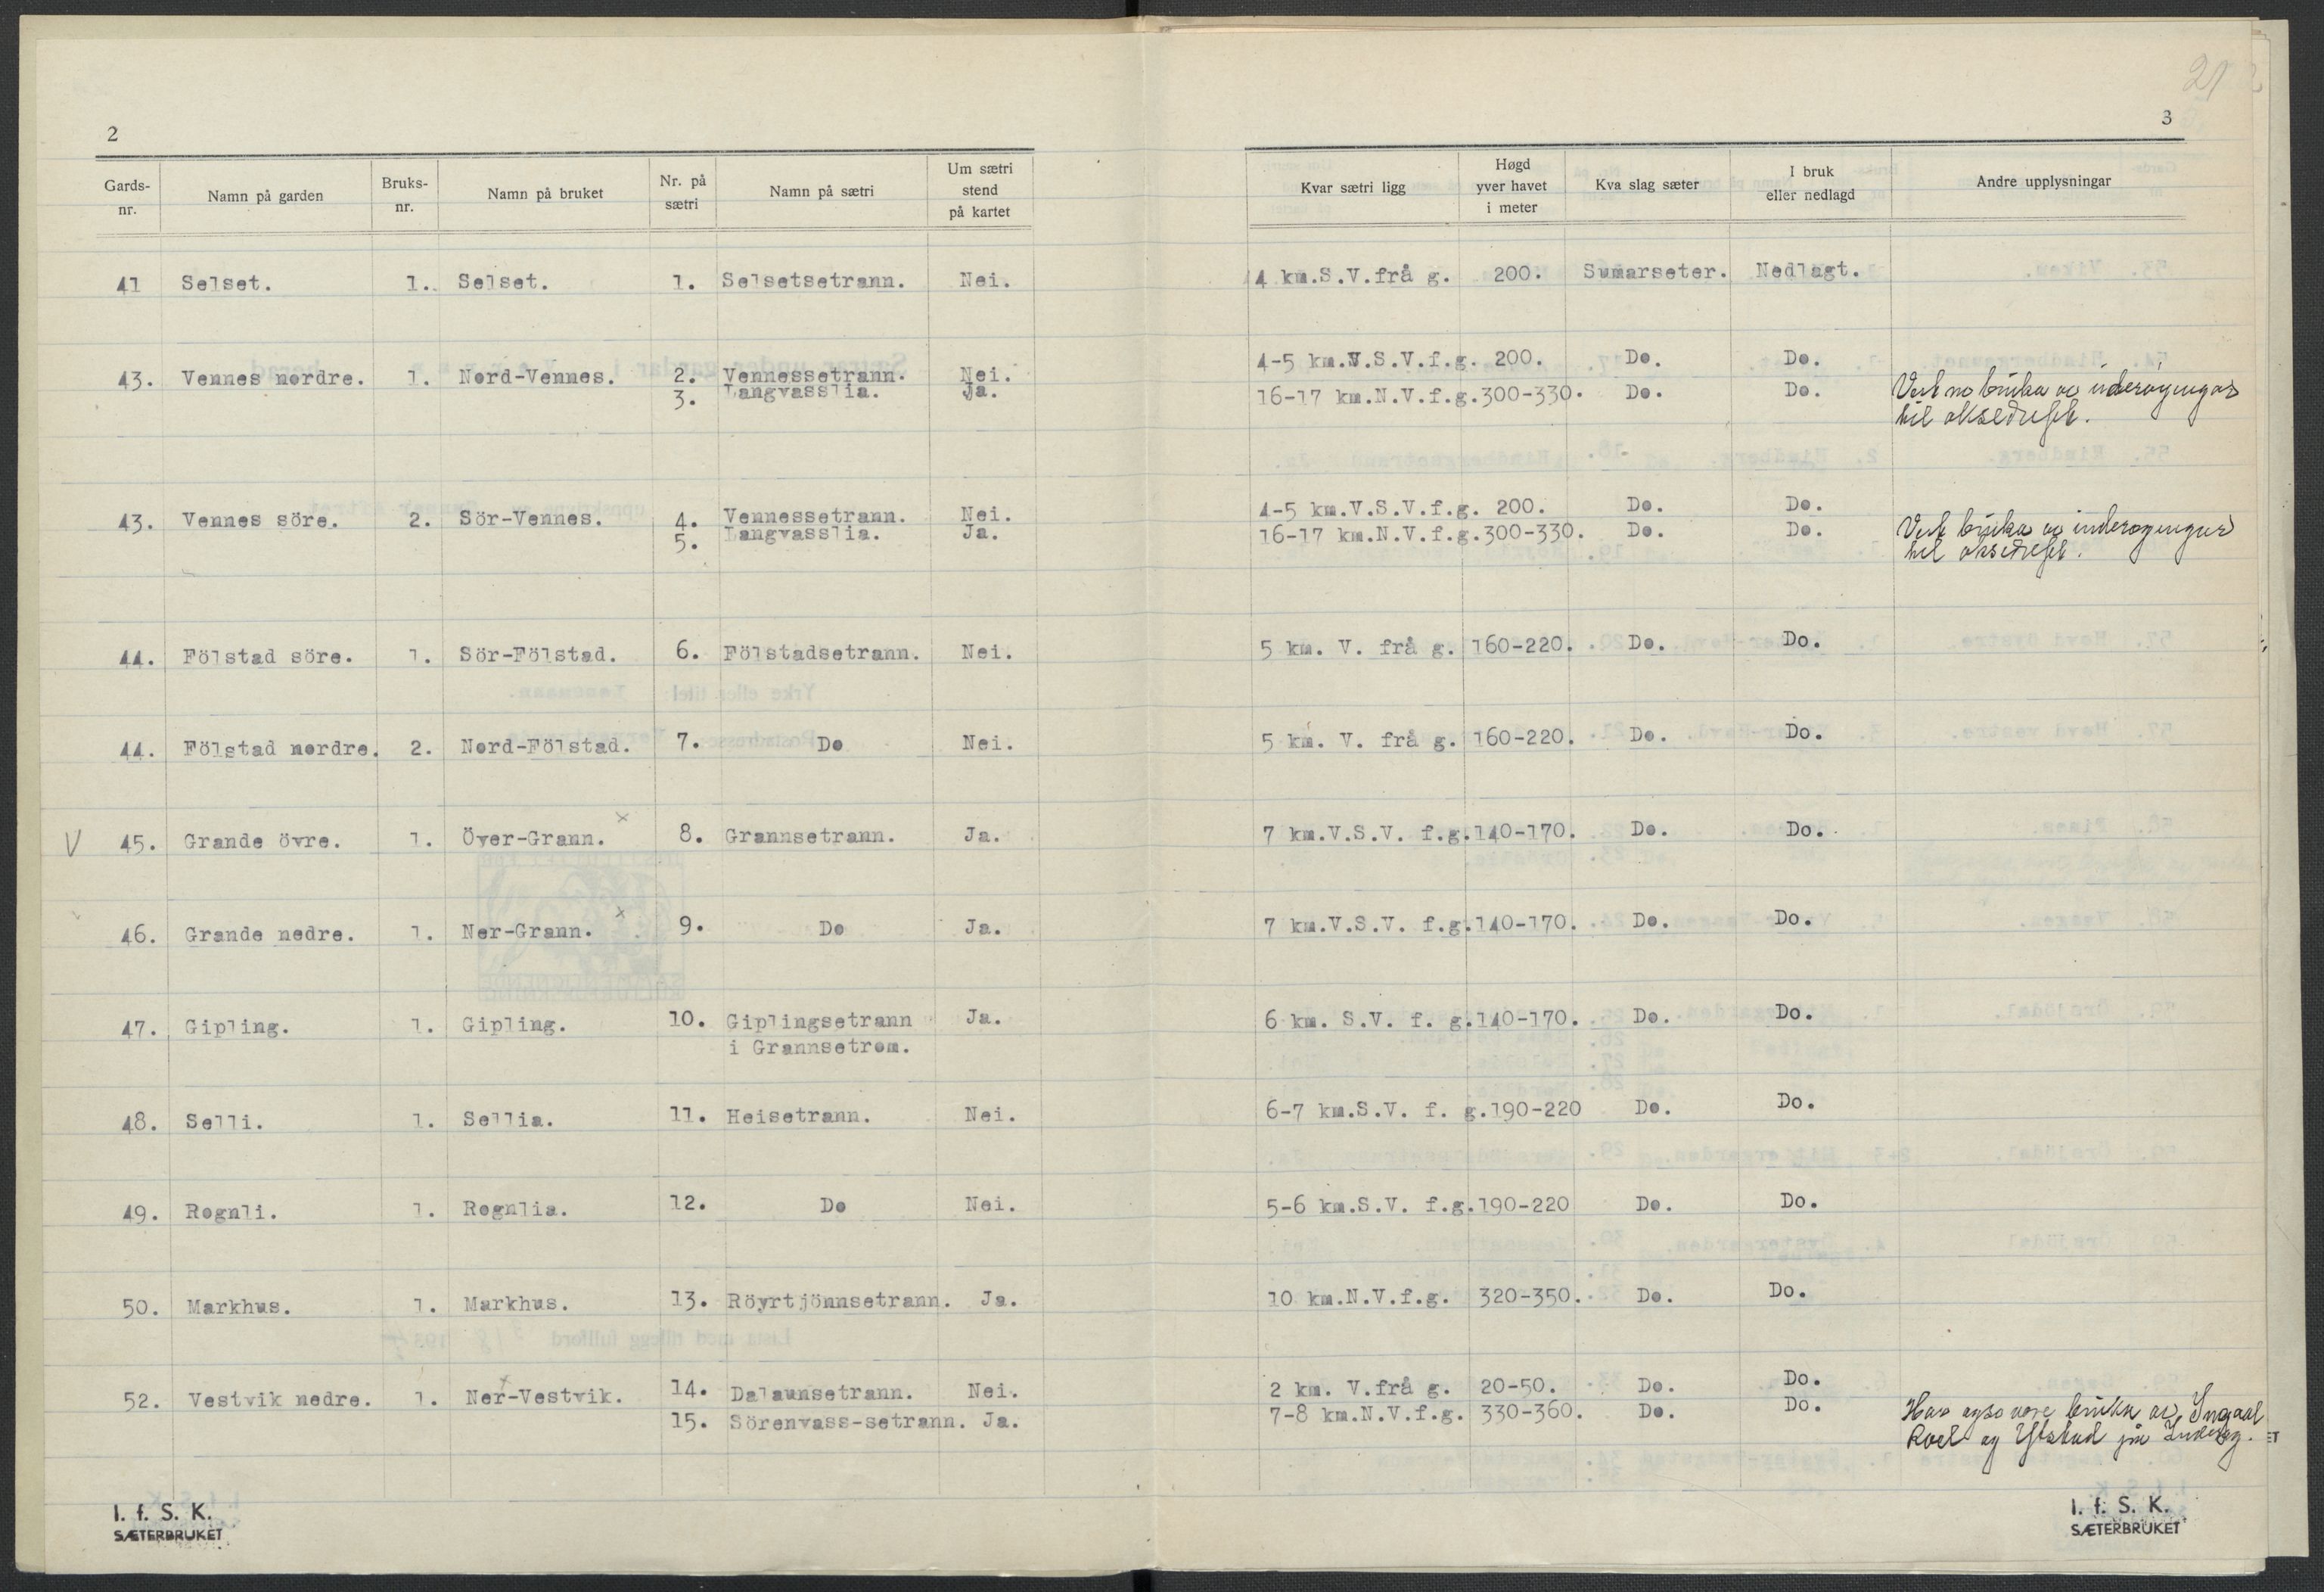 21
2
3
Gards-nr. Namn på garden Bruks-nr. Namn på bruket Nr. på sætri Namn på sætri Um sætri stend på kartet Kvar sætri ligg Høgd yver havet i meter Kva slag sæter I bruk eller nedlagd Andre upplysningar
41 Selset. 1. Selset. 1. Selsetsetrann. Nei. 4 km.S.V.frå g. 200. Sumarseter. Nedlagt.
43. Vennes nordre. 1. Nord-Vennes. 2. Vennessetrann. Nei. 4-5 km.V.S.V.f.g. 200. Do. Do.
3. Langvasslia. Ja. 16-17 km.N.V.f.g.300-330. Do. Do. Vert no bruka av inderøyingar
til oksedrift.
43. Vennes söre. 2. Sör-Vennes. 4. Vennessetrann. Nei. 4-5 km.V.S.V.f.g. 200. Do. Do.
5. Langvasslia. Ja. 16-17 km.N.V.f.g.300-330. Do. Do. Vert bruka av inderøyingar
til oksedrift.
44. Fölstad söre. 1. Sör-Fölstad. 6. Fölstadsetrann. Nei. 5 km. V. frå g. 160-220. Do. Do.
44. Fölstad nordre. 2. Nord-Fölstad. 7. Do Nei. 5 km. V. frå g. 160-220. Do. Do.
V 45. Grande övre. 1. Över-Grann. x 8. Grannsetrann. Ja. 7 km.V.S.V. f.g.140-170. Do. Do.
46. Grande nedre. 1. Ner-Grann. x 9. Do Ja. 7 km.V.S.V. f.g.140-170. Do. Do.
47. Gipling. 1. Gipling. 10. Giplingsetrann Ja. 6 km. S.V. f. g.140-170. Do. Do.
i Grannsetrom.
48. Selli. 1. Sellia. 11. Heisetrann. Nei. 6-7 km.S.V. f. g.190-220 Do. Do.
49. Rognli. 1. Rognlia. 12. Do Nei. 5-6 km.S.V. f.g.190-220 Do. Do.
50. Markhus. 1. Markhus. 13. Röyrtjönnsetrann. Ja. 10 km.N.V.f.g. 320-350. Do. Do.
52. Vestvik nedre. 1. Ner-Vestvik. 14. Dalaunsetrann. Nei. 2 km. V.frå g. 20-50. Do. Do.
15. Sörenvass-setrann. Ja. 7-8 km.N.V.f.g. 330-360. Do. Do. Har også vore bruka av
Roel og Ystad på Inderøy.
I. f. S. K.
SÆTERBRUKET
I. f. S. K.
SÆTERBRUKET